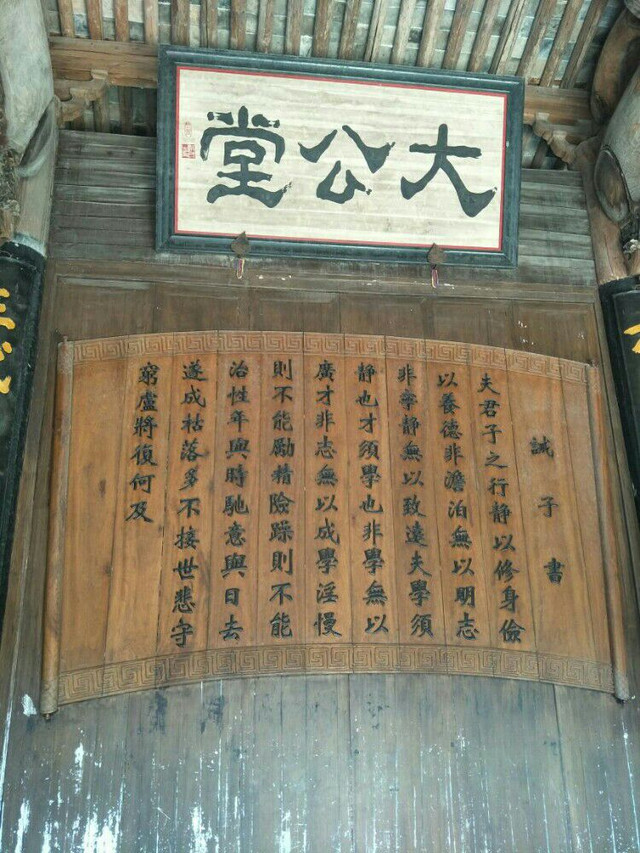 大公堂
誡子書
夫君子之行静以修身儉
以養德非澹泊無以明志
非寧静無以致遠夫學須
静也才須學也非學無以
廣才非志無以成學淫慢
則不能勵精險躁則不能
治性年與時馳意與日去
遂成枯落多不接世悲守
窮廬將復何及